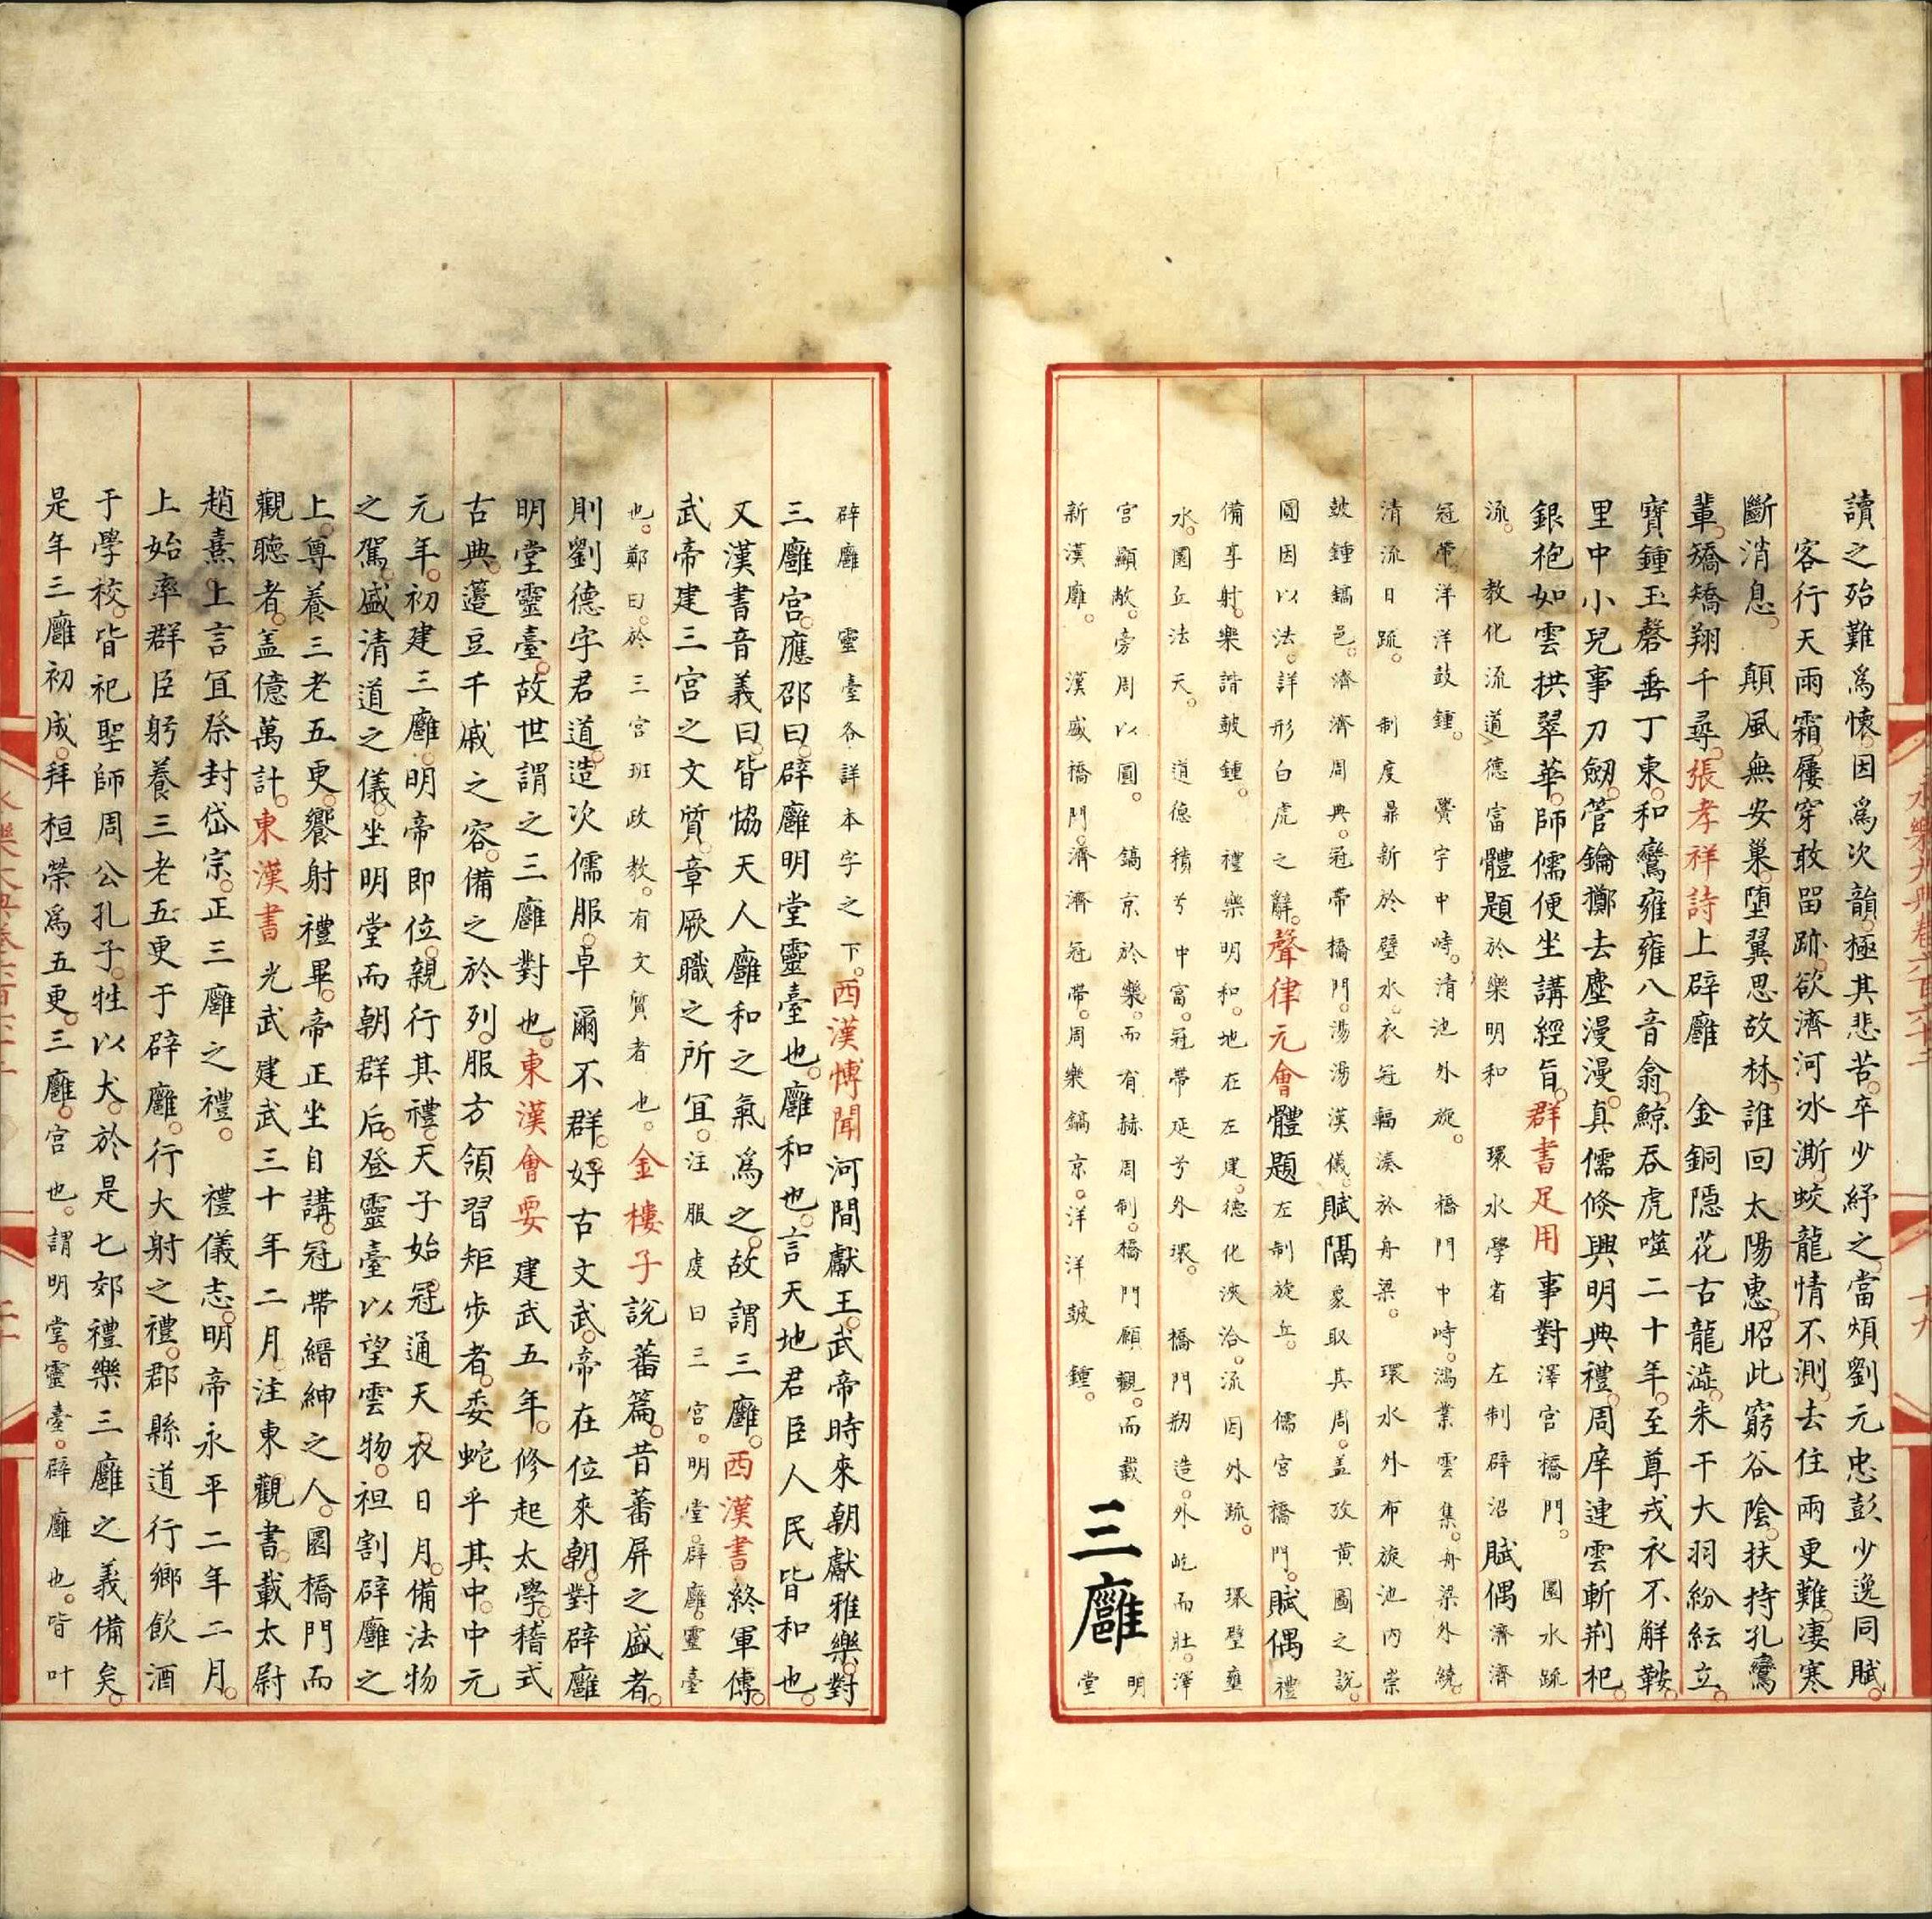 讀之殆難爲懷因爲次韻極其悲苦卒少紓之當煩劉元忠彭少逸同賦
客行天雨霜屨穿敢留跡欲濟河冰澌蛟龍情不測去住兩更難凄寒
斷消息　顛風無安巢墮翼思故林誰回太陽惠昭此窮谷陰扶持孔鸞
輩矯矯翔千尋張孝祥詩上辟廱　金銅隱花古龍澁朱干大羽紛紜立
寶鍾玉磬垂丁東和鸞雍雍八音翕鯨吞虎噬二十年至尊戎衣不解鞍
里中小兒事刀劒管鑰擲去塵漫漫真儒倐興明典禮周庠連雲斬荆杞
銀袍如雲拱翠華師儒便坐講經旨群書足用事對澤宮橋門　圜水疏
流　教化流道德富體題於樂明和　環水學省　左制辟沼賦偶濟濟
冠帶洋洋鼓鍾　黌宇中峙清池外旋　橋門中峙鴻業雲集舟梁外繞
清流日疏　制度鼎新於璧水衣冠輻湊於舟梁　環水外布旋池内崇
鼓鍾鎬邑濟濟周典冠帶橋門湯湯漢儀賦隔象取其周蓋攷黄圖之說
圜因以法詳形白虎之辭聲律元會體題左制旋丘　儒宮橋門賦偶禮
備享射樂諧鼓鍾　禮樂明和地在左建德化浹洽流因外疏　環璧壅
水圜丘法天　道德積兮中富冠帶延兮外環　橋門剏造外屹而壯澤
宮顯敞旁周以圜　鎬京於樂而有赫周制橋門願觀而載
新漢廱　漢盛橋門濟濟冠帶周樂鎬京洋洋鼓鍾
三廱明堂
辟廱　靈臺各詳本字之下西漢愽聞河間獻王武帝時來朝獻雅樂對
三廱宮應邵曰辟廱明堂靈臺也廱和也言天地君臣人民皆和也
又漢書音義曰皆恊天人廱和之氣爲之故謂三廱西漢書終軍傳
武帝建三宮之文質章厥職之所宜注服虔曰三宮明堂辟廱靈臺
也鄭曰於三宮班政教有文質者也金樓子說蕃篇昔蕃屏之盛者
則劉德字君道造次儒服卓爾不群好古文武帝在位來朝對辟廱
明堂靈臺故世謂之三廱對也東漢會要建武五年修起太學稽式
古典籩豆干戚之容備之於列服方領習矩步者委蛇乎其中中元
元年初建三廱明帝即位親行其禮天子始冠通天衣日月備法物
之駕盛清道之儀坐明堂而朝群后登靈臺以望雲物袒割辟廱之
上尊養三老五更饗射禮畢帝正坐自講冠帶縉紳之人圜橋門而
觀聽者盖億萬計東漢書光武建武三十年二月注東觀書載太尉
趙熹上言宜祭封岱宗正三廱之禮　禮儀志明帝永平二年二月
上始率群臣躬養三老五更于辟廱行大射之禮郡縣道行鄉飲酒
于學校皆祀聖師周公孔子牲以犬於是七郊禮樂三廱之義備矣
是年三廱初成拜桓榮爲五更三廱宮也謂明堂靈臺辟廱也皆叶